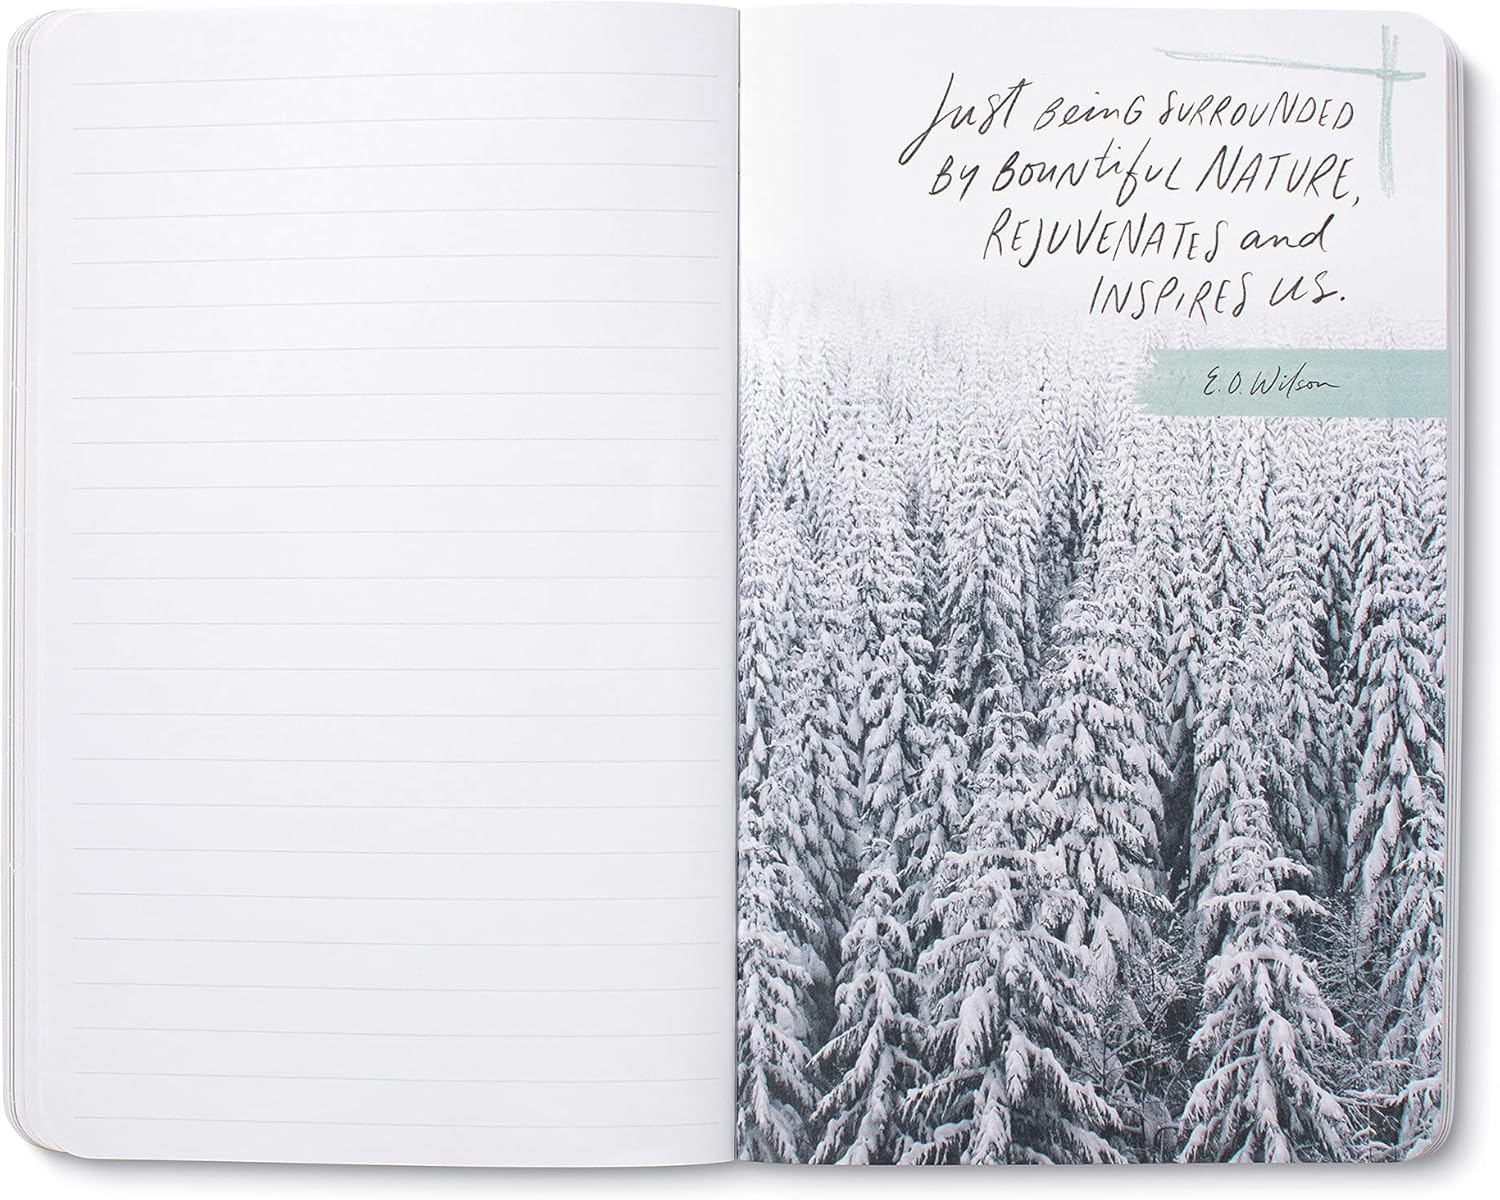 Just Being SURROUNDED
By BOUNtifUL NATURE,
REJUVENATES and
INSPIRES US.
E.O. Wilson